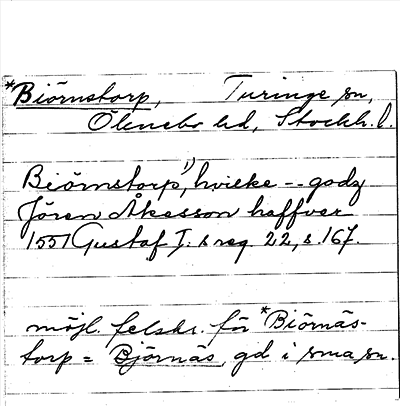 *Biörnstorp, Turinge sn,
Öknebo hd, Stockh. l.
Beörnstorp¹⁾, hvilke -- godz
Jören Åkesson haffver
1551 Gustaf I:s reg. 22, s. 167.
möjl. felskr. för *Biörnäs-
torp = Björnäs, gd i sma sn.